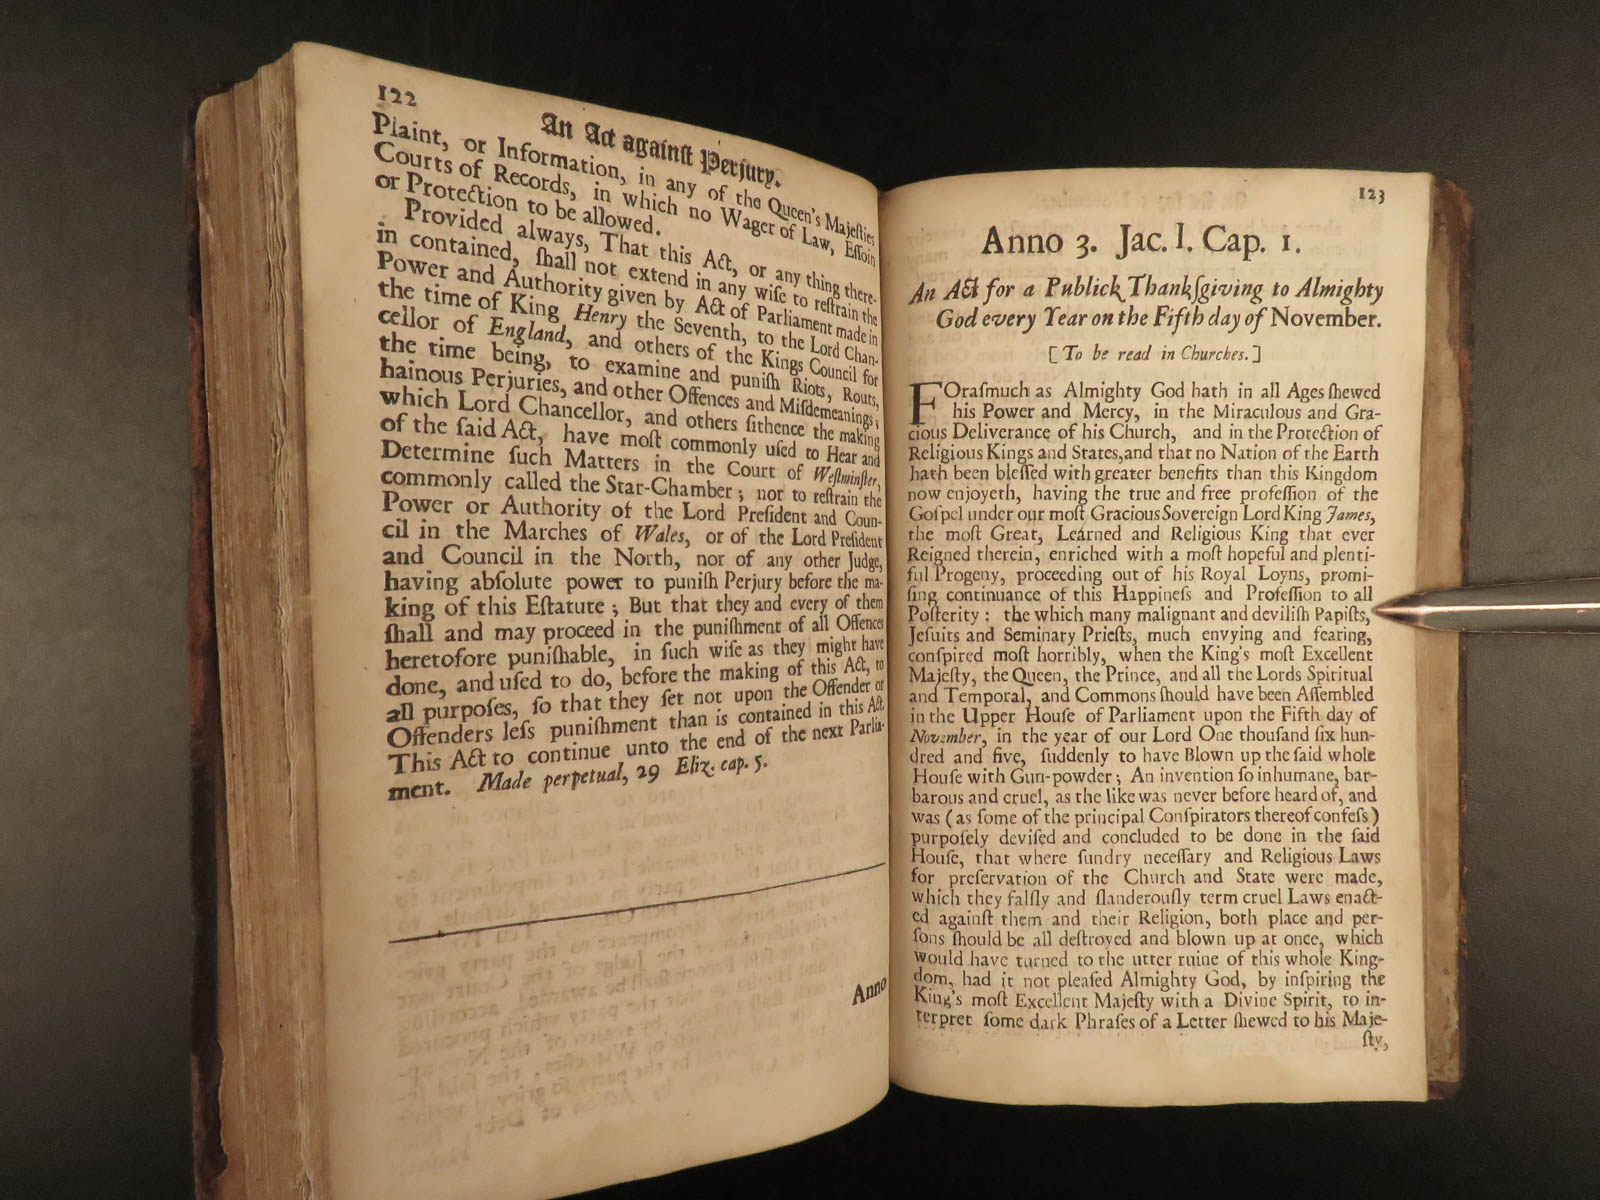 122
An Act againſt Perjury.
Plaint, or Information, in any of the Queen's Majeſties
Courts of Records, in which no Wager of Law, Eſſoin
or Protection to be allowed.
Provided always, That this Act, or any thing there-
in contained, ſhall not extend in any wiſe to reſtrain the
Power and Authority given by Act of Parliament made in
the time of King Henry the Seventh, to the Lord Chan-
cellor of England, and others of the Kings Council for
the time being, to examine and puniſh Riots, Routs,
hainous Perjuries, and other Offences and Miſdemeanings,
which Lord Chancellor, and others ſithence the making
of the ſaid Act, have moſt commonly uſed to Hear and
Determine ſuch Matters in the Court of Weſtminſter,
commonly called the Star-Chamber; nor to reſtrain the
Power or Authority of the Lord Preſident and Coun-
cil in the Marches of Wales, or of the Lord Preſident
and Council in the North, nor of any other Judge,
having abſolute power to puniſh Perjury before the ma-
king of this Eſtatute; But that they and every of them
ſhall and may proceed in the puniſhment of all Offences
heretofore puniſhable, in ſuch wiſe as they might have
done, and uſed to do, before the making of this Act, to
all purpoſes, ſo that they ſet not upon the Offender or
Offenders leſs puniſhment than is contained in this Act.
This Act to continue unto the end of the next Parlia-
ment. Made perpetual, 29 Eliz. cap. 5.
Anno
123
Anno 3. Jac. I. Cap. 1.
An Act for a Publick Thankſgiving to Almighty
God every Year on the Fifth day of November.
[ To be read in Churches. ]
FOraſmuch as Almighty God hath in all Ages ſhewed
his Power and Mercy, in the Miraculous and Gra-
cious Deliverance of his Church, and in the Protection of
Religious Kings and States, and that no Nation of the Earth
hath been bleſſed with greater benefits than this Kingdom
now enjoyeth, having the true and free profeſſion of the
Goſpel under our moſt Gracious Sovereign Lord King James,
the moſt Great, Learned and Religious King that ever
Reigned therein, enriched with a moſt hopeful and plenti-
ful Progeny, proceeding out of his Royal Loyns, promi-
ſing continuance of this Happineſs and Profeſſion to all
Poſterity : the which many malignant and deviliſh Papiſts,
Jeſuits and Seminary Prieſts, much envying and fearing,
conſpired moſt horribly, when the King's moſt Excellent
Majeſty, the Queen, the Prince, and all the Lords Spiritual
and Temporal, and Commons ſhould have been Aſſembled
in the Upper Houſe of Parliament upon the Fifth day of
November, in the year of our Lord One thouſand ſix hun-
dred and five, ſuddenly to have Blown up the ſaid whole
Houſe with Gun-powder; An invention ſo inhumane, bar-
barous and cruel, as the like was never before heard of, and
was ( as ſome of the principal Conſpirators thereof confeſs )
purpoſely deviſed and concluded to be done in the ſaid
Houſe, that where ſundry neceſſary and Religious Laws
for preſervation of the Church and State were made,
which they falſly and ſlanderouſly term cruel Laws enact-
ed againſt them and their Religion, both place and per-
ſons ſhould be all deſtroyed and blown up at once, which
would have turned to the utter ruine of this whole King-
dom, had it not pleaſed Almighty God, by inſpiring the
King's moſt Excellent Majeſty with a Divine Spirit, to in-
terpret ſome dark Phraſes of a Letter ſhewed to his Maje-
ſty,